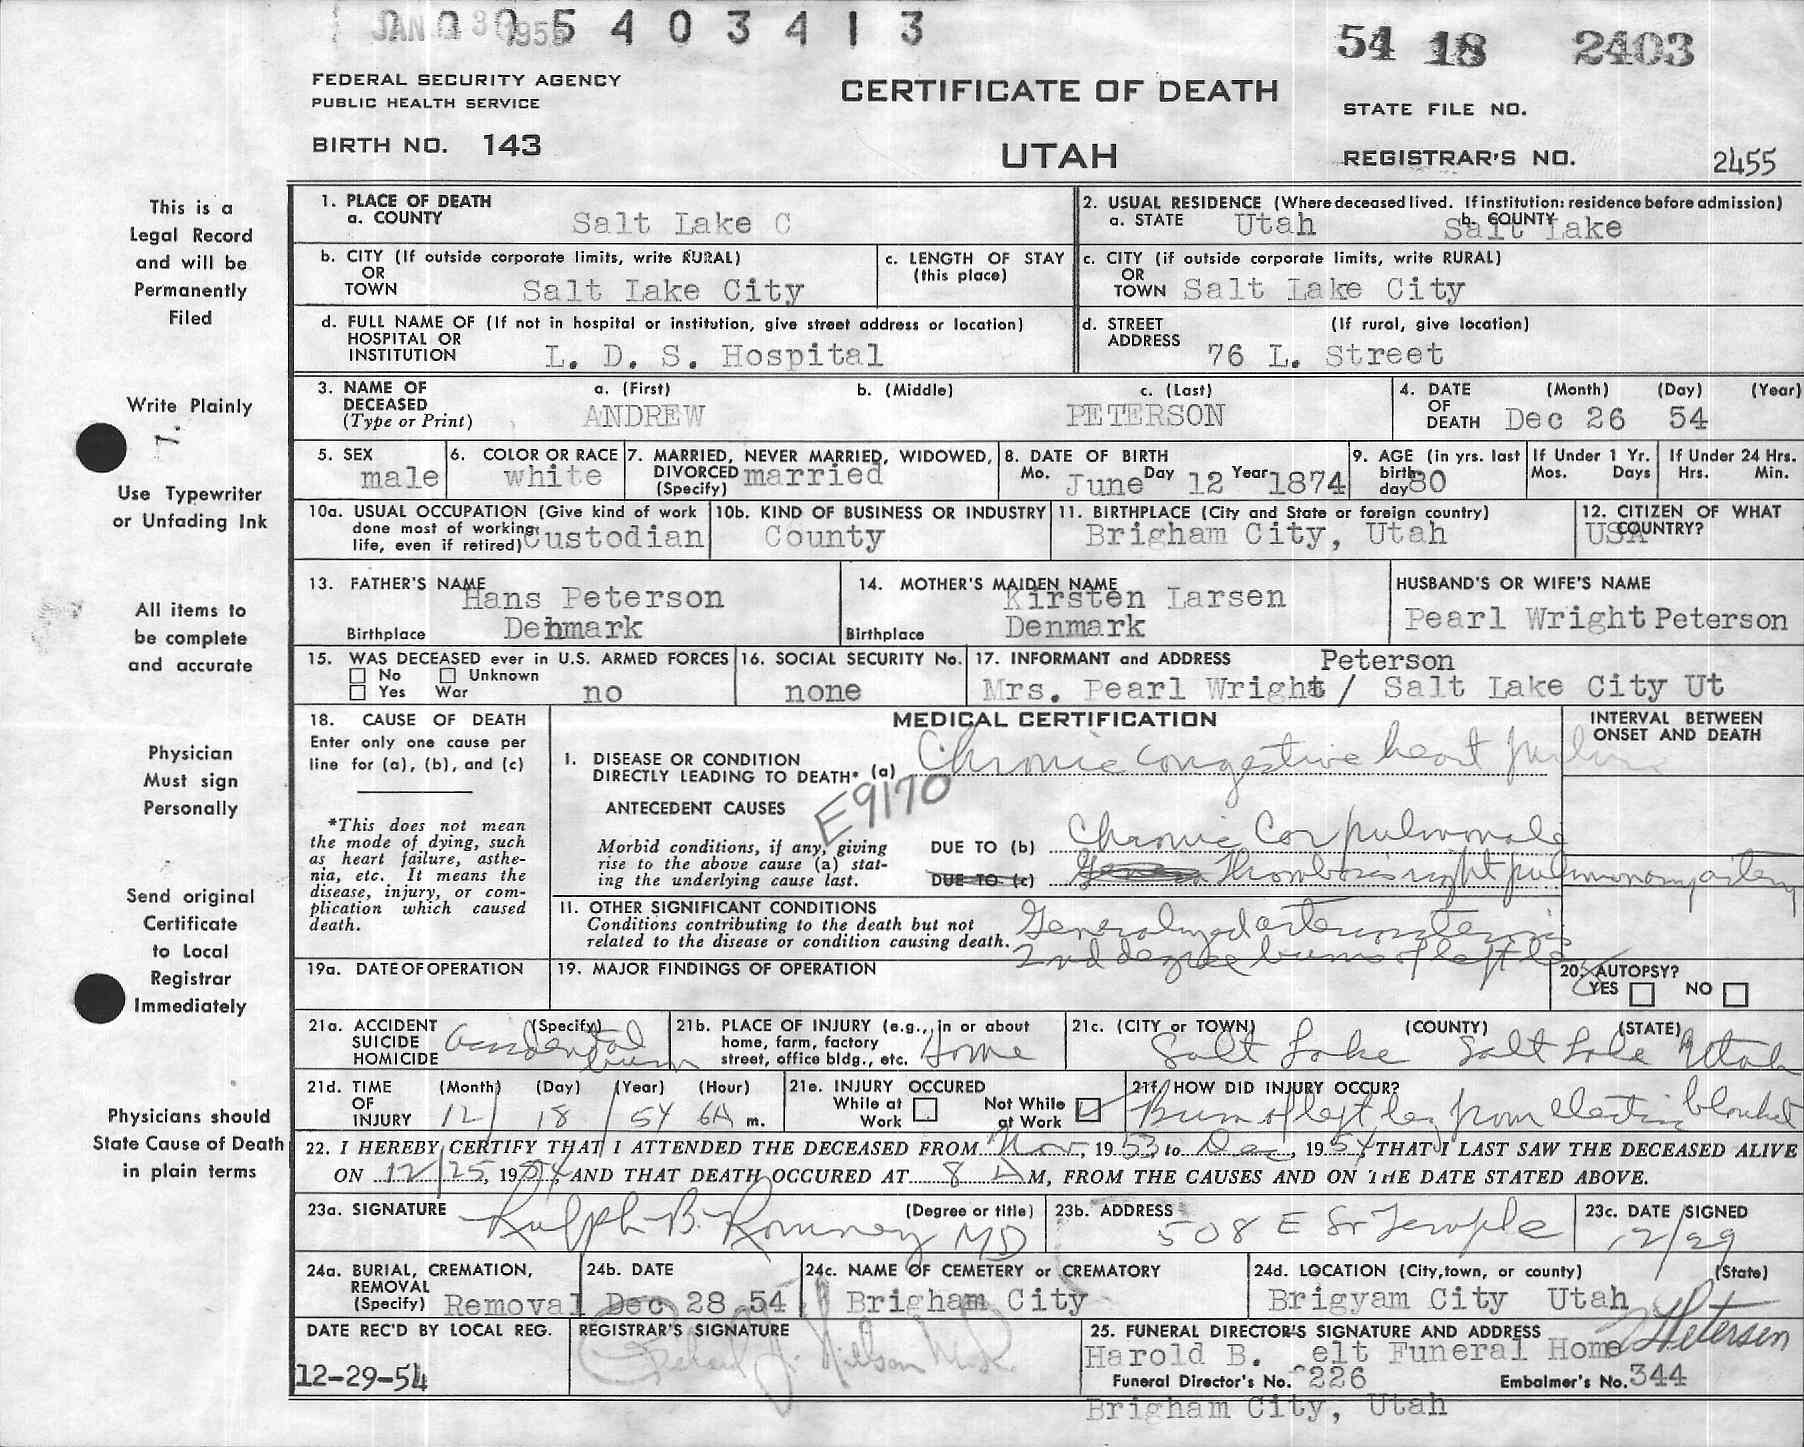 JAN 03 1955
0005403413
54 18 2403
FEDERAL SECURITY AGENCY
PUBLIC HEALTH SERVICE
BIRTH NO. 143
CERTIFICATE OF DEATH
UTAH
STATE FILE NO.
REGISTRAR'S NO. 2455
This is a
Legal Record
and will be
Permanently
Filed
Write Plainly
Use Typewriter
or Unfading Ink
All items to
be complete
and accurate
Physician
Must sign
Personally
Send original
Certificate
to Local
Registrar
Immediately
Physicians should
State Cause of Death
in plain terms
1. PLACE OF DEATH
a. COUNTY Salt Lake C
2. USUAL RESIDENCE (Where deceased lived. If institution: residence before admission)
a. STATE Utah b. COUNTY Salt Lake
b. CITY (If outside corporate limits, write RURAL)
OR
TOWN Salt Lake City
c. LENGTH OF STAY
(this place)
c. CITY (if outside corporate limits, write RURAL)
OR
TOWN Salt Lake City
d. FULL NAME OF (If not in hospital or institution, give street address or location)
HOSPITAL OR
INSTITUTION L. D. S. Hospital
d. STREET (If rural, give location)
ADDRESS 76 L. Street
3. NAME OF
DECEASED
(Type or Print)
a. (First) b. (Middle) c. (Last)
ANDREW PETERSON
4. DATE (Month) (Day) (Year)
OF
DEATH Dec 26 54
5. SEX
male
6. COLOR OR RACE
white
7. MARRIED, NEVER MARRIED, WIDOWED,
DIVORCED married
(Specify)
8. DATE OF BIRTH
Mo. June Day 12 Year 1874
9. AGE (in yrs. last
birth
day 80
If Under 1 Yr.
Mos. Days
If Under 24 Hrs.
Hrs. Min.
10a. USUAL OCCUPATION (Give kind of work
done most of working
life, even if retired) Custodian
10b. KIND OF BUSINESS OR INDUSTRY
County
11. BIRTHPLACE (City and State or foreign country)
Brigham City, Utah
12. CITIZEN OF WHAT
COUNTRY?
USA
13. FATHER'S NAME
Hans Peterson
Birthplace Denmark
14. MOTHER'S MAIDEN NAME
Kirsten Larsen
Birthplace Denmark
HUSBAND'S OR WIFE'S NAME
Pearl Wright Peterson
15. WAS DECEASED ever in U.S. ARMED FORCES
No Unknown
Yes War no
16. SOCIAL SECURITY No.
none
17. INFORMANT and ADDRESS Peterson
Mrs. Pearl Wright / Salt Lake City Ut
18. CAUSE OF DEATH
Enter only one cause per
line for (a), (b), and (c)
*This does not mean
the mode of dying, such
as heart failure, asthe-
nia, etc. It means the
disease, injury, or com-
plication which caused
death.
MEDICAL CERTIFICATION
INTERVAL BETWEEN
ONSET AND DEATH
I. DISEASE OR CONDITION
DIRECTLY LEADING TO DEATH* (a) Chronic congestive heart failure
ANTECEDENT CAUSES
E9170
Morbid conditions, if any, giving
rise to the above cause (a) stat-
ing the underlying cause last.
DUE TO (b) Chronic Cor pulmonale
DUE TO (c) Thrombosis right pulmonary artery
II. OTHER SIGNIFICANT CONDITIONS
Conditions contributing to the death but not
related to the disease or condition causing death.
Generalized
2nd degree burns of left leg
19a. DATE OF OPERATION
19. MAJOR FINDINGS OF OPERATION
20. AUTOPSY?
YES NO
21a. ACCIDENT (Specify)
SUICIDE
HOMICIDE
Accidental
burn
21b. PLACE OF INJURY (e.g., in or about
home, farm, factory
street, office bldg., etc. Home
21c. (CITY or TOWN) (COUNTY) (STATE)
Salt Lake Salt Lake Utah
21d. TIME (Month) (Day) (Year) (Hour)
OF
INJURY 12/ 18 / 54 6A m.
21e. INJURY OCCURED
While at
Work
Not While
at Work
21f. HOW DID INJURY OCCUR?
Burn of left leg from electric blanket
22. I HEREBY CERTIFY THAT I ATTENDED THE DECEASED FROM Nov, 1953 to Dec, 1954, THAT I LAST SAW THE DECEASED ALIVE
ON 12/25, 1954, AND THAT DEATH OCCURED AT 8 A M, FROM THE CAUSES AND ON THE DATE STATED ABOVE.
23a. SIGNATURE (Degree or title)
Ralph B. Romney MD
23b. ADDRESS
508 E So Temple
23c. DATE SIGNED
12/29
24a. BURIAL, CREMATION,
REMOVAL
(Specify) Removal
24b. DATE
Dec 28 54
24c. NAME OF CEMETERY or CREMATORY
Brigham City
24d. LOCATION (City, town, or county) (State)
Brigyam City Utah
DATE REC'D BY LOCAL REG.
12-29-54
REGISTRAR'S SIGNATURE
25. FUNERAL DIRECTOR'S SIGNATURE AND ADDRESS
Petersen
Harold B. elt Funeral Home
Funeral Director's No. 226 Embalmer's No. 344
Brigham City, Utah